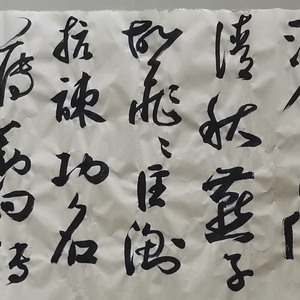 清秋燕子
故飛〻匡衡
抗疎功名
薄劉向傳